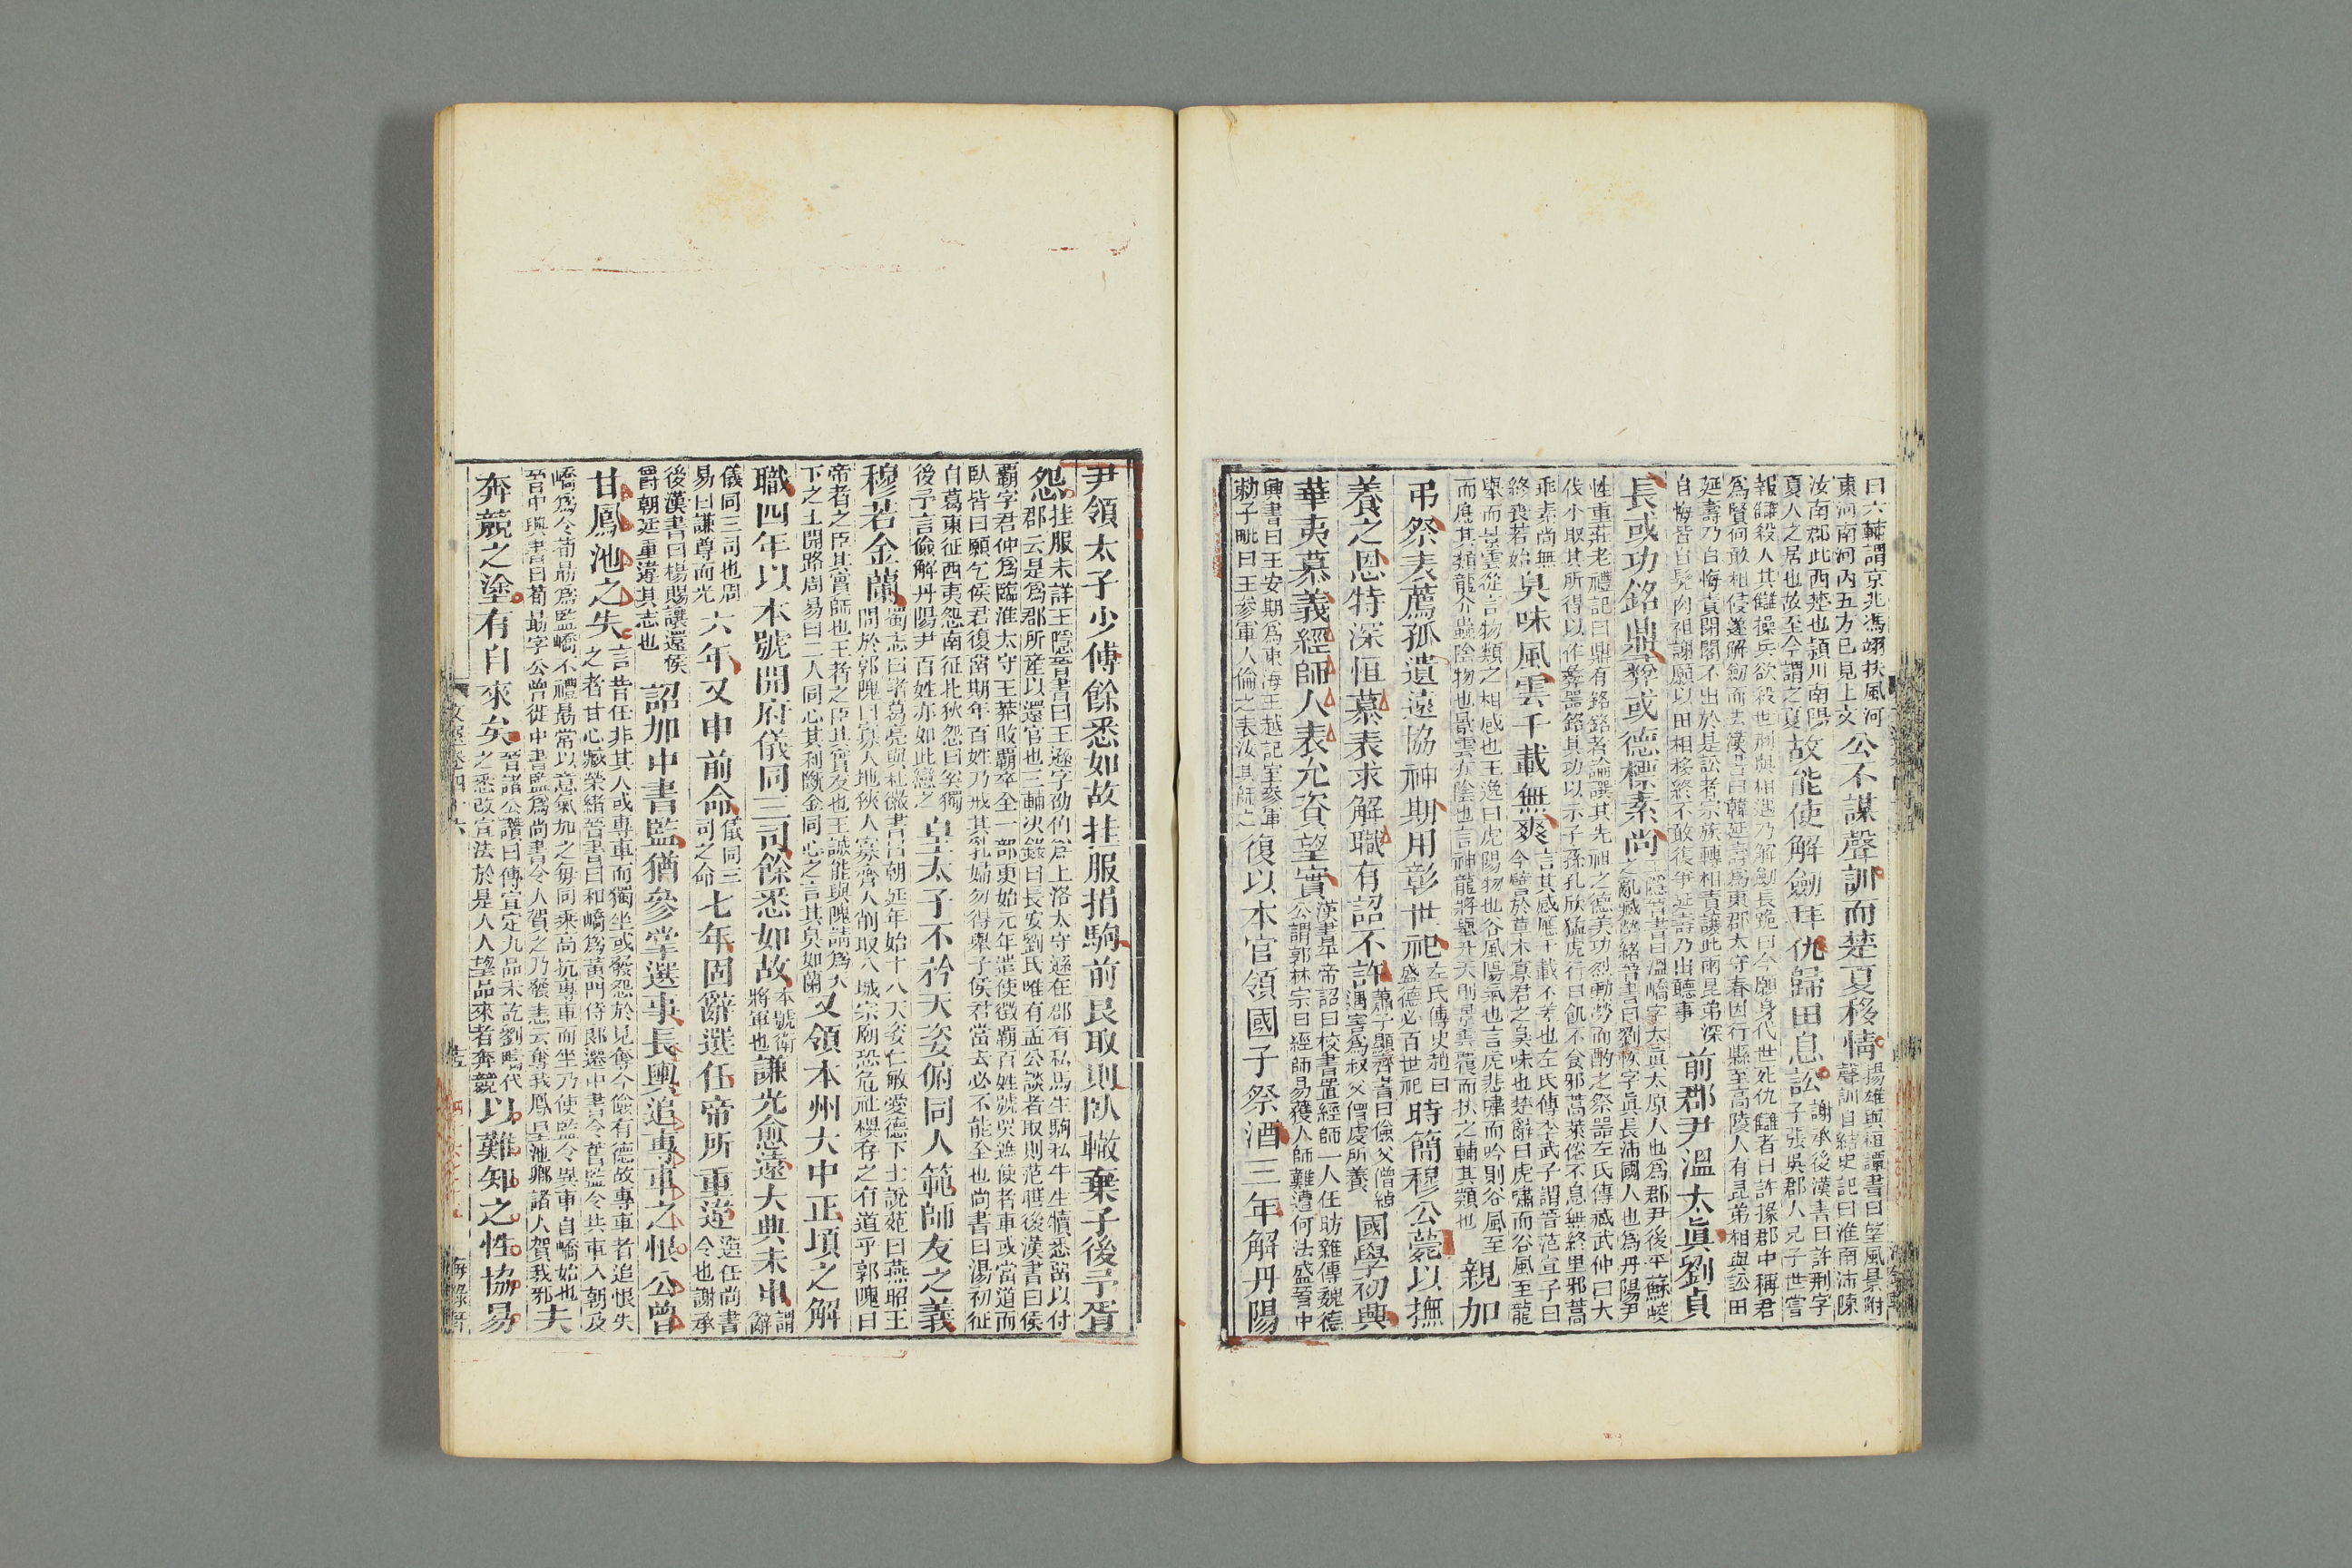 曰六輔謂京兆馮翊扶風河
東河南河內五方已見上文
公不謀聲訓而楚夏移情
揚雄與桓譚書曰望風景附
聲訓自結史記曰淮南沛陳
汝南郡此西楚也潁川南陽
夏人之居也故至今謂之夏
故能使解劒拜仇歸田息訟
謝承後漢書曰許荆字
子張吳郡人兄子世嘗
報讎殺人其讎操兵欲殺世荆與相遇乃解劒長跪曰今願身代世死仇讎者曰許掾郡中稱君
爲賢何敢相侵遂解劒而去漢書曰韓延壽爲東郡太守春因行縣至高陵人有昆弟相與訟田
延壽乃自悔責閉閤不出於是訟者宗族轉相責讓此兩昆弟深
自悔皆自髠肉袒謝願以田相移終不敢復爭延壽乃出聽事
前郡尹溫太眞劉眞
長或功銘鼎彝或德標素尚
王隱晉書曰溫嶠字太眞太原人也爲郡尹後平蘇峻
之亂臧榮緒晉書曰劉惔字眞長沛國人也爲丹陽尹
性重莊老禮記曰鼎有銘銘者論譔其先祖之德美功烈勳勞而酌之祭器左氏傳臧武仲曰大
伐小取其所得以作彝器銘其功以示子孫孔欣猛虎行曰飢不食邪蒿萊倦不息無終里邪蒿
乖素尚無
終喪若始
臭味風雲千載無爽
言其感應千載不差也左氏傳季武子謂晉范宣子曰
今譬於草木寡君之臭味也楚辭曰虎嘯而谷風至龍
舉而景雲從言物類之相感也王逸曰虎陽物也谷風陽氣也言虎悲嘯而吟則谷風至
而應其類龍介蟲陰物也景雲亦陰也言神龍將舉升天則景雲覆而扶之輔其類也
親加
弔祭表薦孤遺遠協神期用彰世祀
左氏傳史趙曰
盛德必百世祀
時簡穆公薨以撫
養之恩特深恒慕表求解職有詔不許
蕭子顯齊書曰儉父僧綽
遇害爲叔父僧虔所養
國學初興
華夷慕義經師人表允資望實
漢書平帝詔曰校書置經師一人任昉雜傳魏德
公謂郭林宗曰經師易獲人師難遭何法盛晉中
興書曰王安期爲東海王越記室參軍
勅子毗曰王參軍人倫之表汝其師之
復以本官領國子祭酒三年解丹陽
尹領太子少傅餘悉如故挂服捐駒前良取則臥轍棄子後予胥
怨
挂服未詳王隱晉書曰王遜字劭伯爲上洛太守遜在郡有私馬生駒私牛生犢悉畱以付
郡云是爲郡所產以還官也三輔決錄曰長安劉氏唯有孟公談者取則范曄後漢書曰侯
霸字君仲爲臨淮太守王莽敗霸卒全一部更始元年遣使徵霸百姓號哭遮使者車或當道而
臥皆曰願乞侯君復畱期年百姓乃戒其乳婦勿得舉子侯君當去必不能全也尚書曰湯初征
自葛東征西夷怨南征北狄怨曰奚獨
後予言儉解丹陽尹百姓亦如此戀之
皇太子不矜天姿俯同人範師友之義
穆若金蘭
蜀志曰諸葛亮與杜微書曰朝廷年始十八天姿仁敏愛德下士說苑曰燕昭王
問於郭隗曰寡人地狹人寡齊人削取八城宗廟恐危社稷存之有道乎郭隗曰
帝者之臣其實師也王者之臣其實友也王誠能與隗請爲天
下之士開路周易曰二人同心其利斷金同心之言其臭如蘭
又領本州大中正頃之解
職四年以本號開府儀同三司餘悉如故
本號衛
將軍也
謙光愈遠大典未申
謂辭
儀同三司也周
易曰謙尊而光
六年又申前命
儀同三
司之命
七年固辭選任帝所重違
選任尚書
令也謝承
後漢書曰楊賜讓還侯
爵朝廷重違其志也
詔加中書監猶參掌選事長輿追專車之恨公曾
甘鳳池之失
言昔任非其人或專車而獨坐或發怨於見奪今儉有德故專車者追恨失
之者甘心臧榮緒晉書曰和嶠爲黃門侍郎遷中書令舊監令共車入朝及
嶠爲令荀勗爲監嶠不禮勗常以意氣加之每同乘高抗專車而坐乃使監令異車自嶠始也
晉中興書曰荀勗字公曾從中書監爲尚書令人賀之乃發恚云奪我鳳皇池卿諸人賀我邪
夫
奔競之塗有自來矣
晉諸公讚曰傅宣定九品未訖劉疇代
之悉改宣法於是人人望品求者奔競
以難知之性協易
文選卷四十六
海錄軒